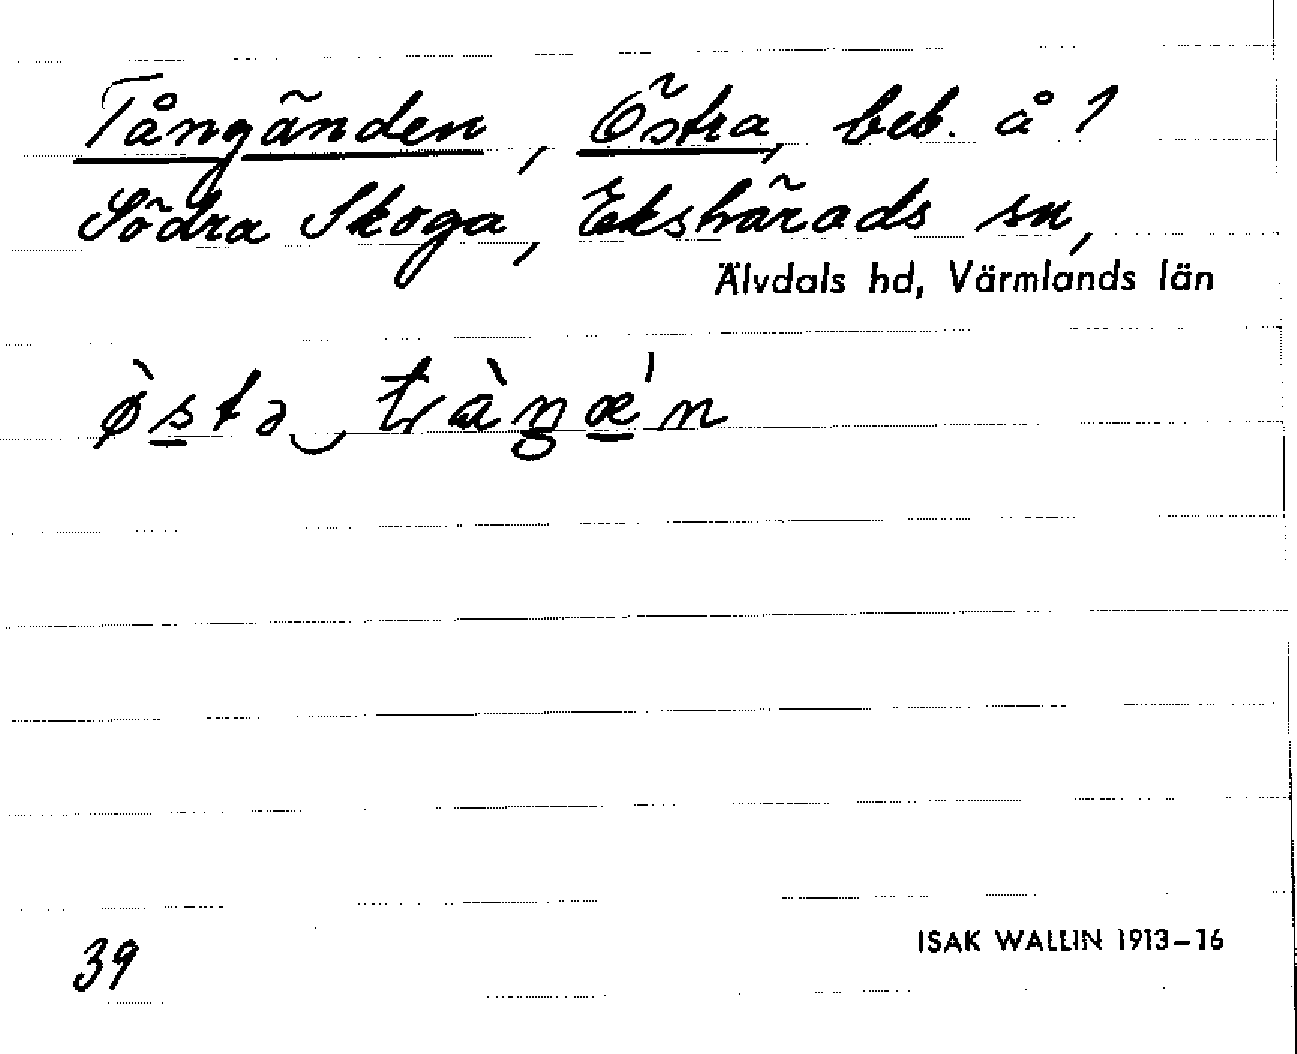 Tångänden, Östra, beb. å 1
Södra Skoga, Ekshärads sn,
Älvdals hd, Värmlands län
ø̀stə‿tràŋæ̲'n
39
ISAK WALLIN 1913–16